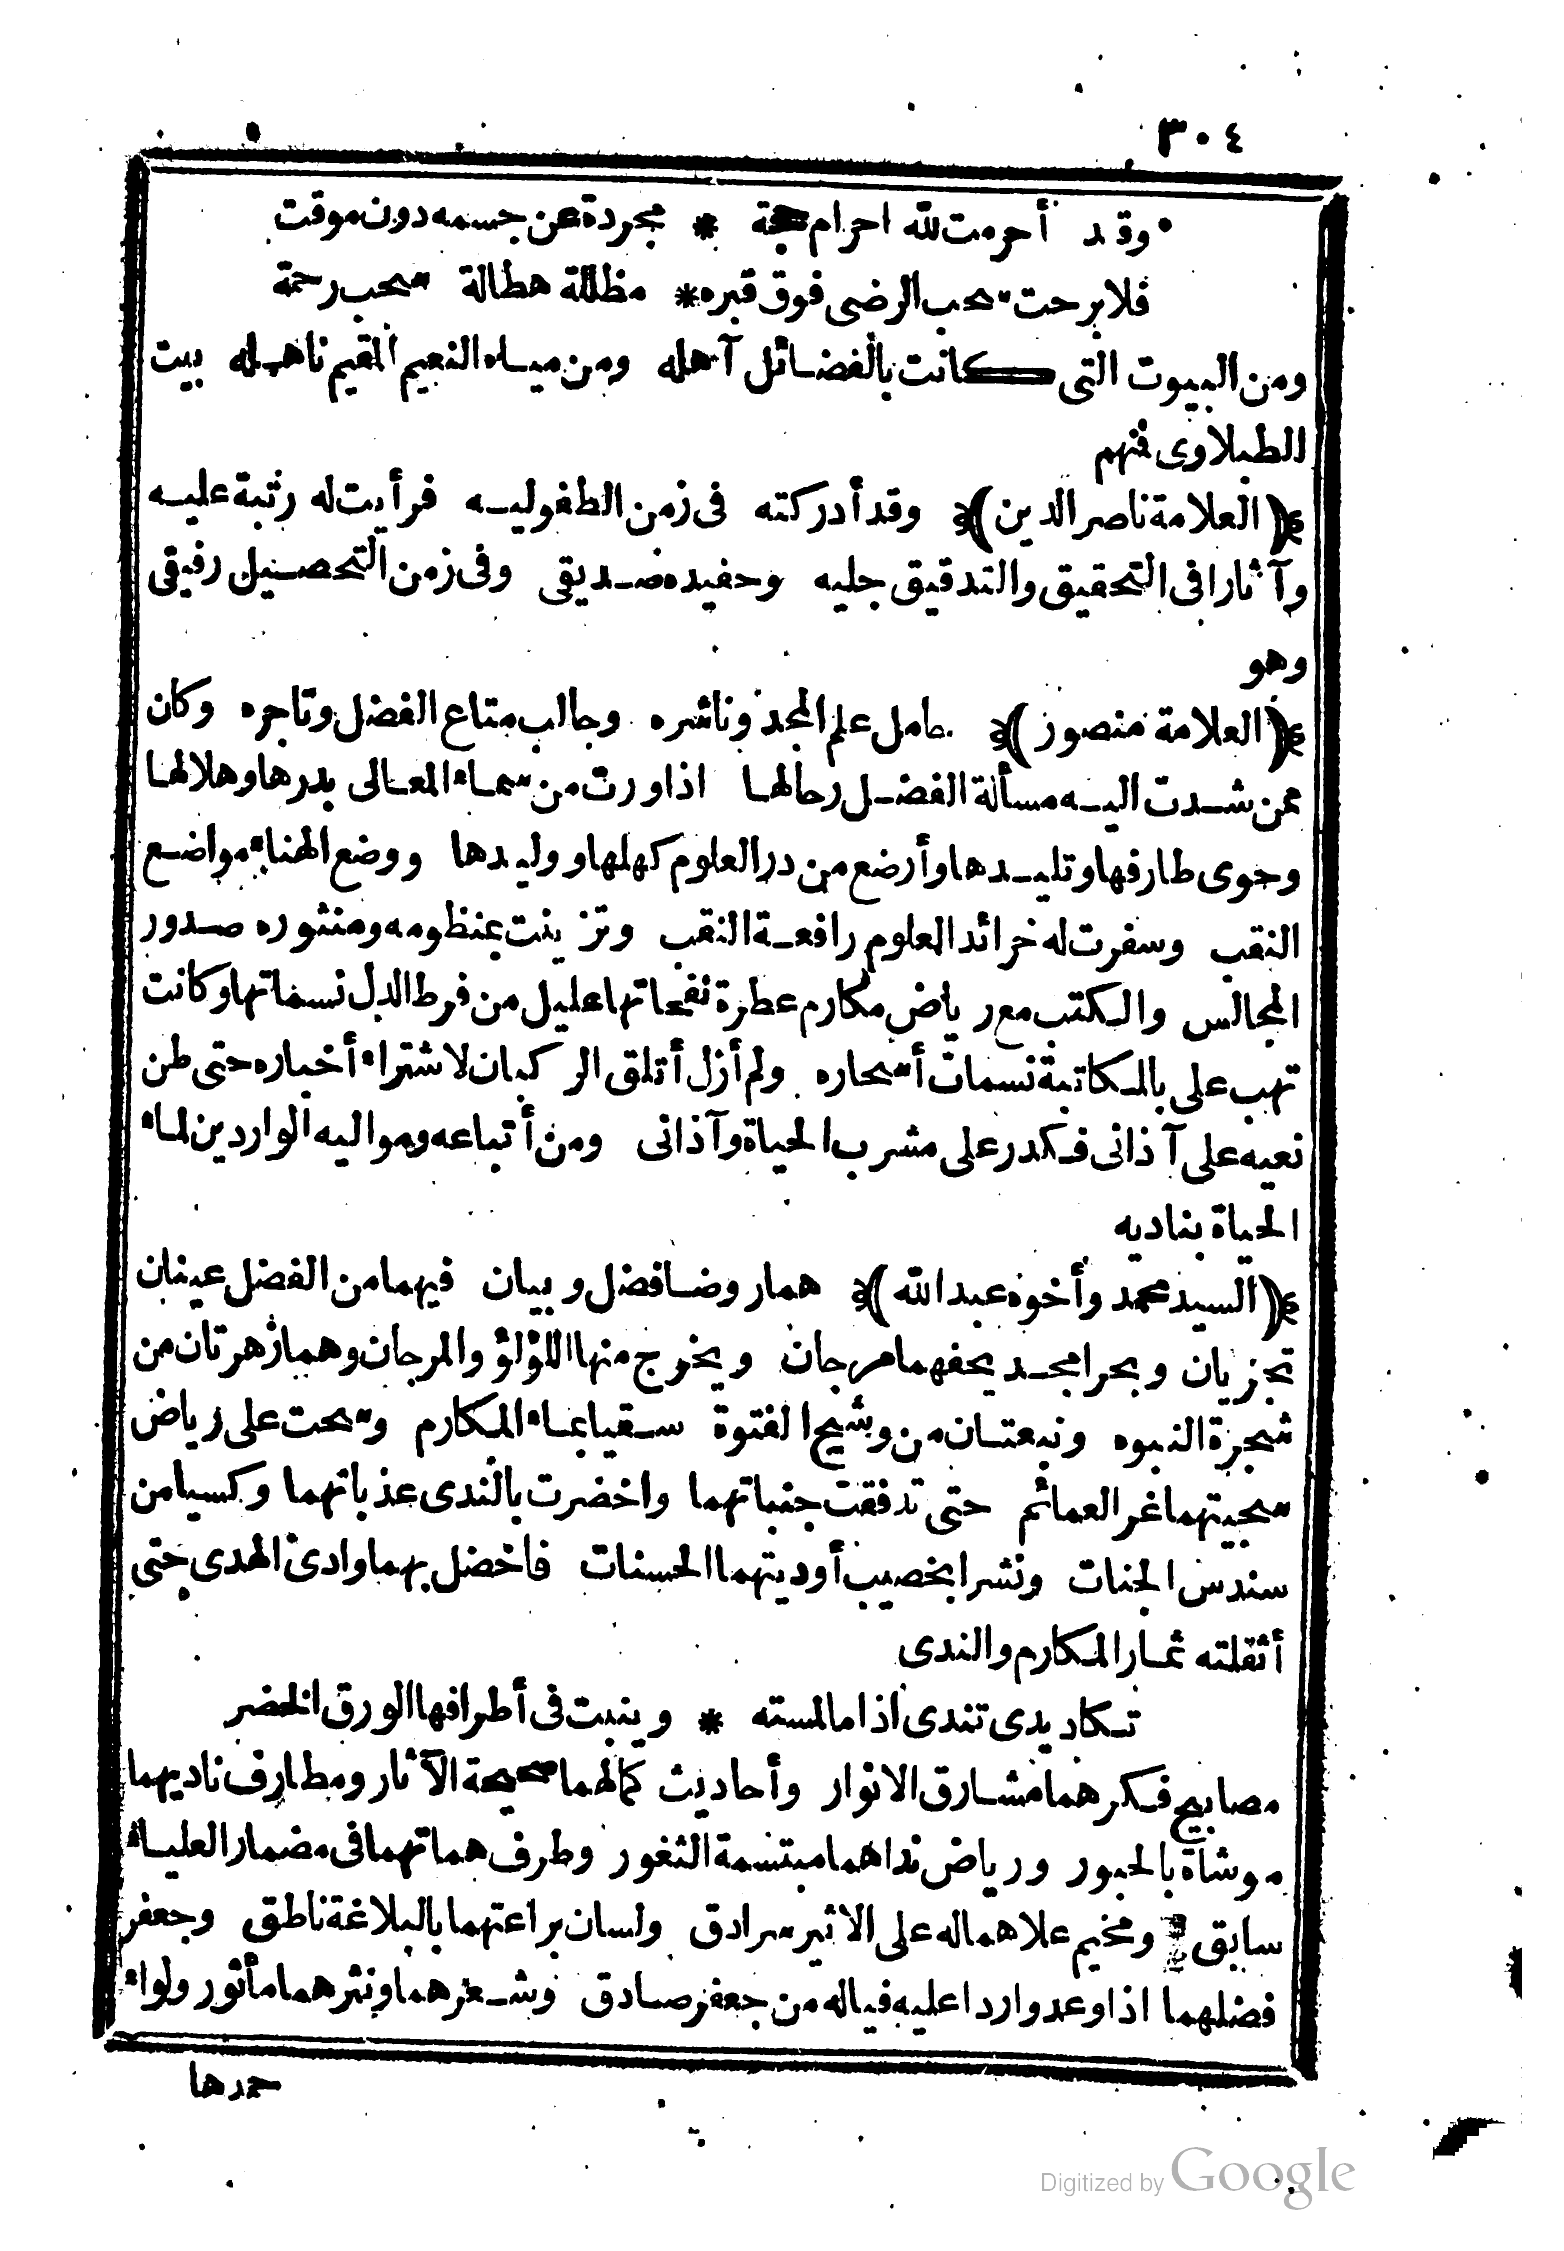 ٣٠٤
وقد أحرمت لله احرام حجة * مجردة عن جسمه دون موقت
فلا برحت سحب الرضى فوق قبره * مظللة هطالة سحب رحمة
ومن البيوت التى كانت بالفضائل آهله ومن مياه النعيم المقيم ناهله بيت
الطبلاوى فنهم
﴿العلامة ناصر الدين﴾ وقد أدركته فى زمن الطفوليه فرأيت له رتبة عليه
وآثارا فى التحقيق والتدقيق جليه وحفيده صديقى وفى زمن التحصيل رفيقى
وهو
﴿العلامة منصور﴾ حامل علم المجد وناشره وجالب متاع الفضل وتاجره وكان
ممن شدت اليه مسألة الفضل رحالها اذا ورت من سماء المعالى بدرها وهلالها
وحوى طارفها وتليدها وأرضع من در العلوم كهلها ووليدها ووضع الهناء مواضع
النقب وسفرت له خرائد العلوم رافعة النقب وتزينت بمنظومه ومنثوره صدور
المجالس والكتب مع رياض مكارم عطرة نفحاتها عليل من فرط الدل نسماتها وكانت
تهب على بالمكاتبة نسمات أسحاره ولم أزل أتلق الركبان لاشتراء أخباره حتى طن
نعيه على آذانى فكدر على مشرب الحياة وآذانى ومن أتباعه ومواليه الواردين لماء
الحياة بناديه
﴿السيد محمد وأخوه عبد الله﴾ هما روضا فضل وبيان فيهما من الفضل عينان
تجريان وبحرا مجد يحفهما مرجان ويخرج منها اللؤلؤ والمرجان وهما زهرتان من
شجرة النبوه ونبعتان من وشيج الفتوة سقيا بماء المكارم وسحت على رياض
سجيتهما غر العمائم حتى تدفقت جنباتهما واخضرت بالندى عذباتهما وكسيا من
سندس الجنات ونشرا بخصيب أوديتهما الحسنات فاخضل بهما وادى الهدى حتى
أثقلته ثمار المكارم والندى
تكاد يدى تندى اذا ما لمسته * وينبت فى أطرافها الورق الخضر
مصابيح فكرهما مشارق الانوار وأحاديث كمالهما صحيحة الآثار ومطارف ناديهما
موشاة بالحبور ورياض نداهما مبتسمة الثغور وطرف هماتهما فى مضمار العلياء
سابق ومخيم علاهما له على الاثير سرادق ولسان براعتهما بالبلاغة ناطق وجعفر
فضلهما اذا وعد واردا عليه فياله من جعفر صادق وشعرهما ونثرهما مأثور ولواء
حمدها
Digitized by Google